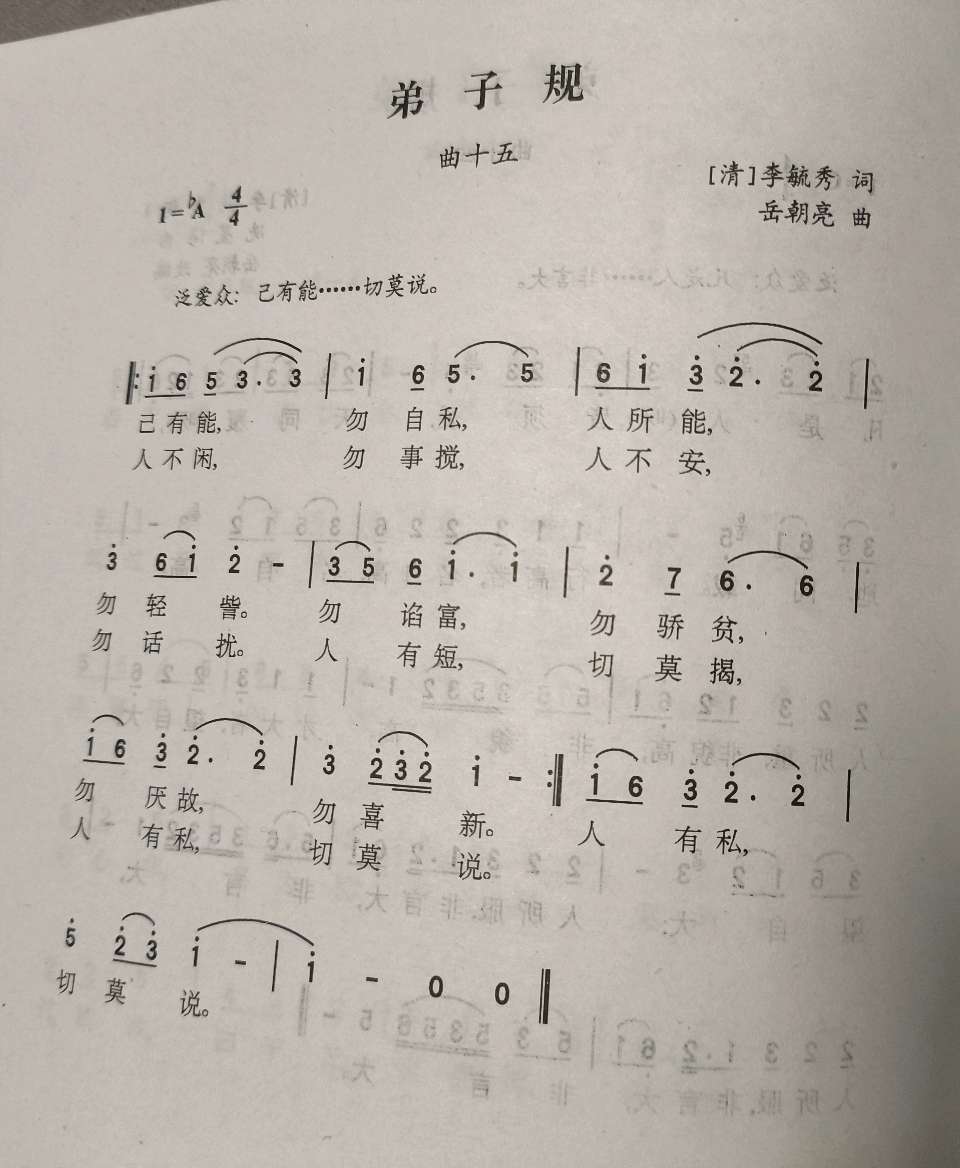 弟子规
曲十五
[清]李毓秀 词
1=♭A 4/4
岳朝亮 曲
泛爱众：己有能……切莫说。
‖: i 6 5 3. 3 | i 6 5. 5 | 6 i 3̇ 2̇. 2̇ |
己有能， 勿 自私， 人所能，
人不闲， 勿 事搅， 人不安，
3̇ 6 i 2̇ - | 3 5 6 i. i | 2̇ 7 6. 6 |
勿 轻 訾。 勿 谄富， 勿 骄贫，
勿 话 扰。 人 有短， 切 莫揭，
i 6 3̇ 2̇. 2̇ | 3̇ 2̇ 3̇ 2̇ i - :‖ i 6 3̇ 2̇. 2̇ |
勿 厌故， 勿 喜 新。 人 有私，
人 有私， 切 莫 说。
5̇ 2̇ 3̇ i - | i - 0 0 ‖
切 莫 说。